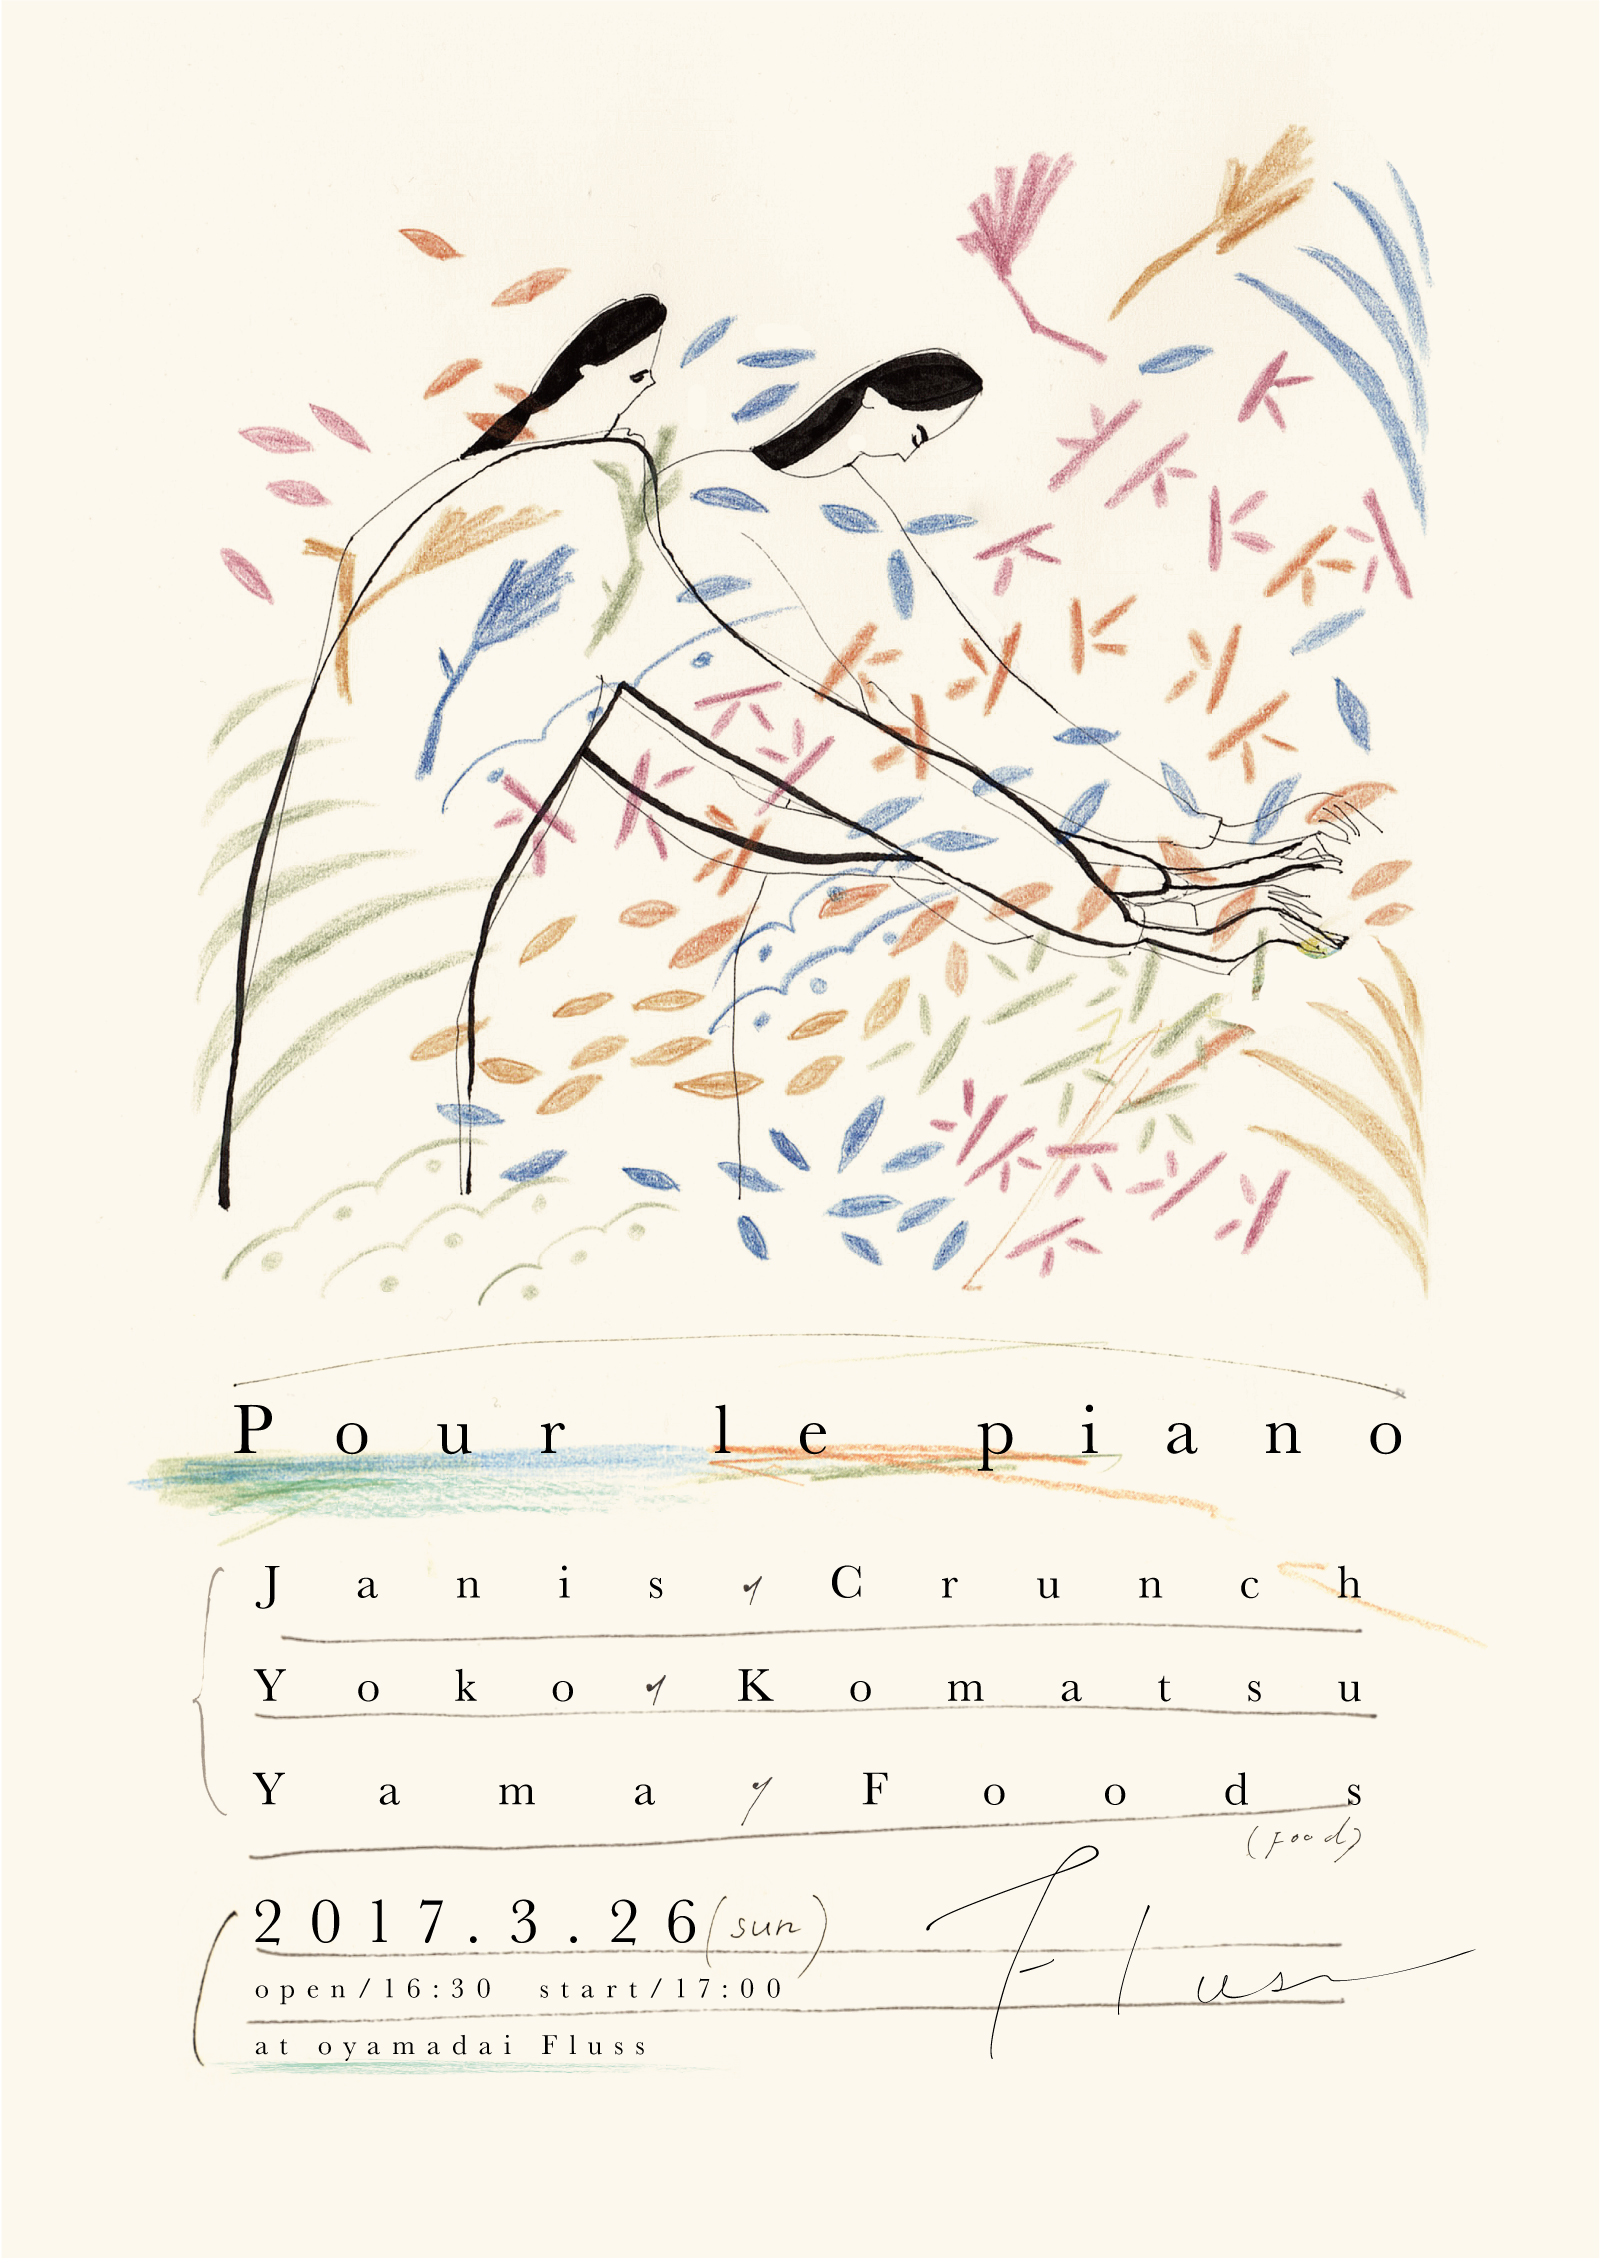 Pour le piano
Janis Crunch
Yoko Komatsu
Yama Foods
(Food)
2017.3.26 (sun)
Fluss
open/16:30 start/17:00
at oyamadai Fluss